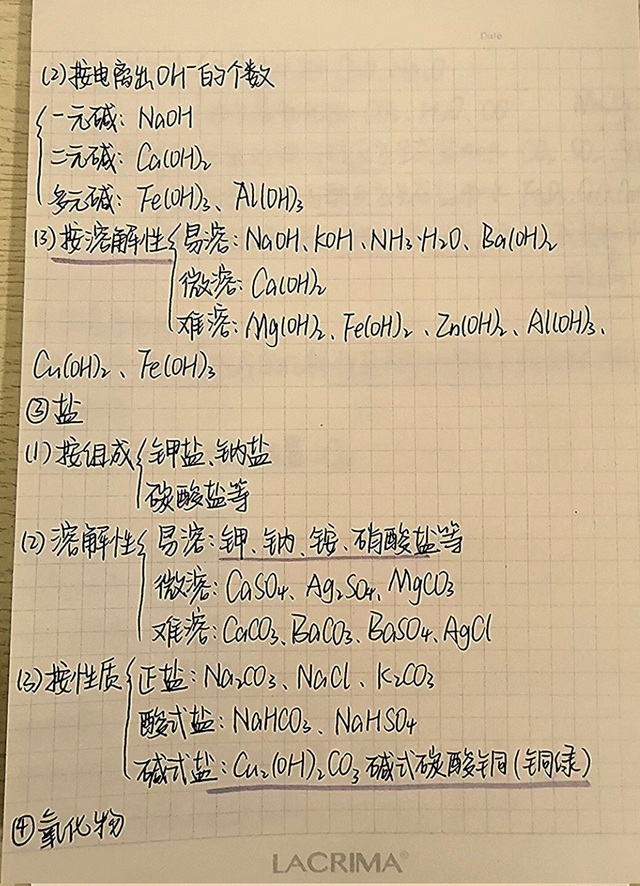 Date
(2)按电离出OH⁻的个数
一元碱：NaOH
二元碱：Ca(OH)₂
多元碱：Fe(OH)₃、Al(OH)₃
(3)按溶解性 易溶：NaOH、KOH、NH₃·H₂O、Ba(OH)₂
微溶：Ca(OH)₂
难溶：Mg(OH)₂、Fe(OH)₂、Zn(OH)₂、Al(OH)₃、
Cu(OH)₂、Fe(OH)₃
③盐
(1)按组成 钾盐、钠盐
碳酸盐等
(2)溶解性 易溶：钾、钠、铵、硝酸盐等
微溶：CaSO₄、Ag₂SO₄、MgCO₃
难溶：CaCO₃、BaCO₃、BaSO₄、AgCl
(3)按性质 正盐：Na₂CO₃、NaCl、K₂CO₃
酸式盐：NaHCO₃、NaHSO₄
碱式盐：Cu₂(OH)₂CO₃ 碱式碳酸铜(铜绿)
④氧化物
LACRIMA®